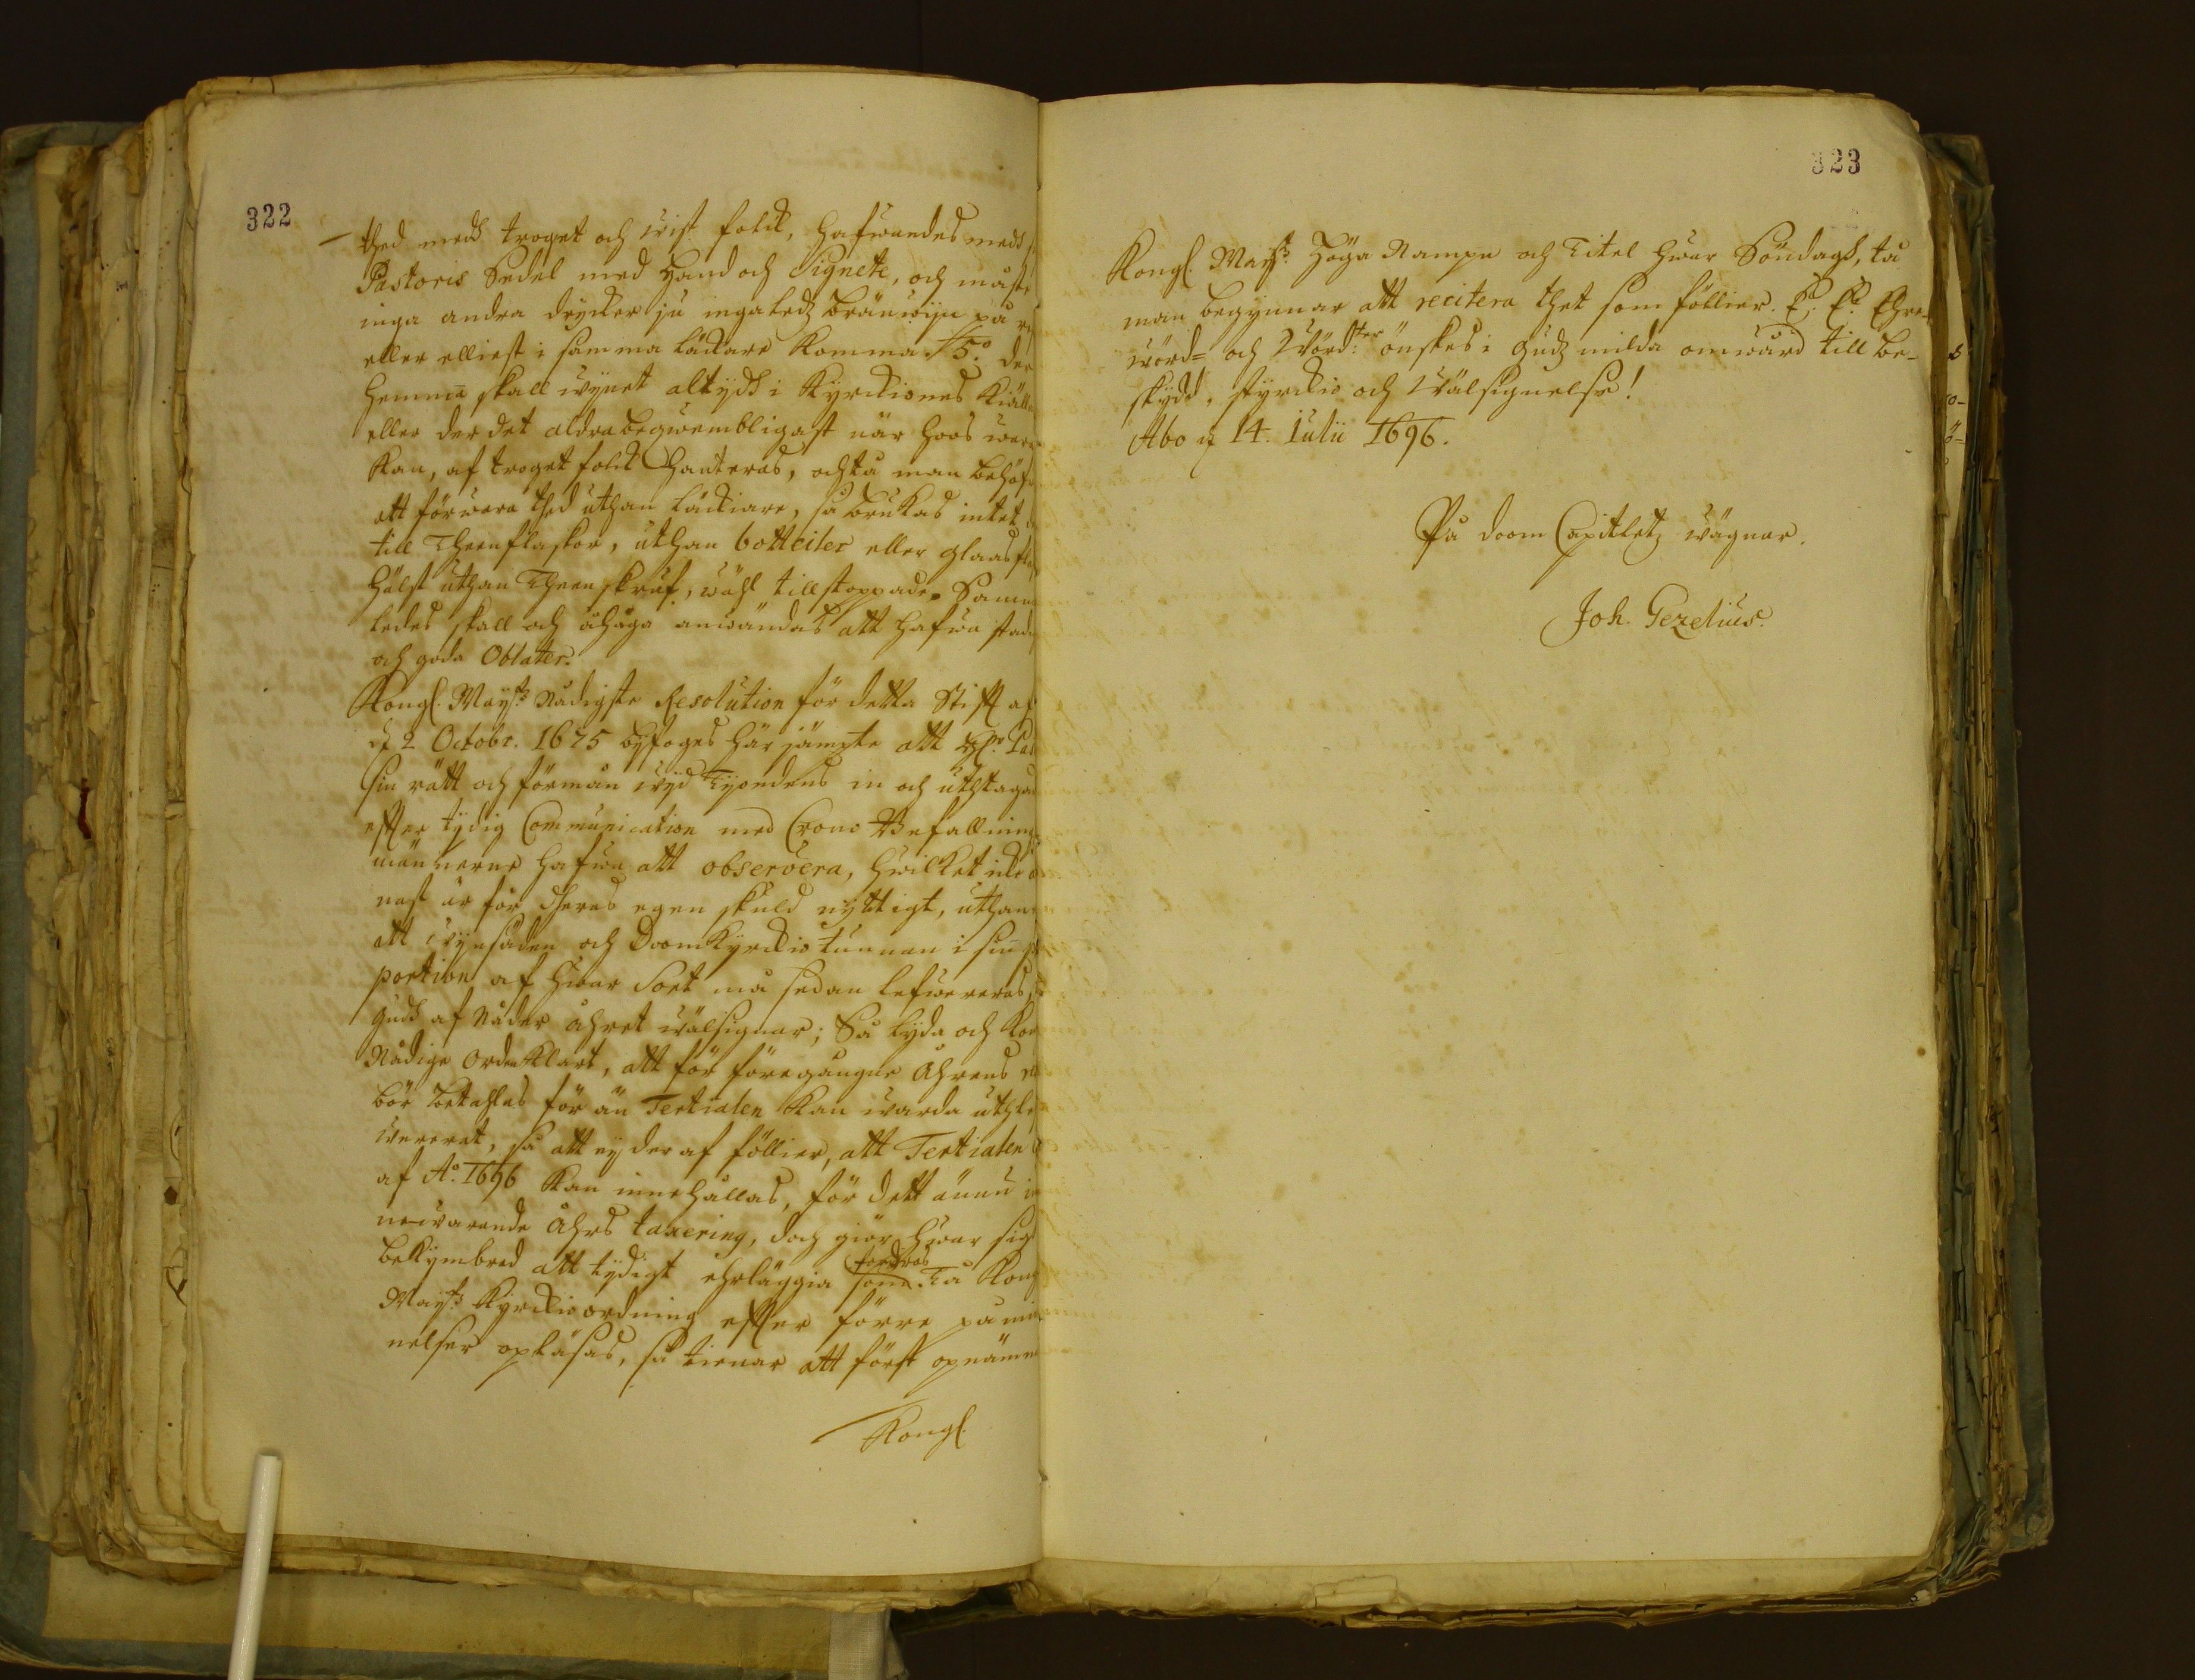 322
thed medh troget och wist folck, hafwandes medh
Pastoris Sedel med Hand och Signete, och måste
inga andra drycker ju ingaledz bränwijn på
eller elliest i samma läckare komma. 5:o der
hemma skall wijnet altijdh i Kyrckiones
eller der det aldrabeqwembligast när hoos
kan, af troget folck handteras, och tå man
att förwara thed uthan läckiare, så brukas intet
till Theenflaskor, uthan botteiler eller glaas
hälst uthan Theen skruf, wähl tillstoppade. Samma
ledes skall och åhåga anwändas att hafwa
och goda Oblater.
Kongl. May:tz Nådigste Resolution för detta Stift af
d. 2 Octobr. 1675 byfoges här jämpte att
sin rätt och förmån wijd Tijondens in och uthtagande
effter tijdig Communication med Crono Befallnings
männerne hafwa att observera, hwilket icke
nast är för theras egen skuld nyttigt, uthan
att wijnsäden och Doomkyrckiotunnan i sin
portion af hwar Sort må sedan lefwereras,
Gudh af Nåder åhret wälsignar; Så lyda och
Nådige orden klart, att för föregångne Åhrens
bör betahlas för än Tertialen kan warda uthle
wererat, så att ej der af föllier, att Tertialen
af A:o 1696 kan innehållas, för dett ännu
newarande Åhrs taxering, doch giör hwar sigh
bekymbrad att tijdigt ehrläggia fordras
som. Tå Kongl
May:tz Kyrckioordning effter förre påmin
nelser opläsas, så tienar att först opnämna
Kongl.
323
Kongl. May:tz Höga Nampn och Titel hwar Söndagh, tå
man begynnar att recitera thet som föllier. E. E. Ehre-
wörd- och Wörd:ter önskes i Gudz milda omwård till be-
skydd, styrckio och Wälsignelse!
Åbo d. 14. Julii 1696.
På Doom Capitletz wägnar.
Joh. Gezelius.